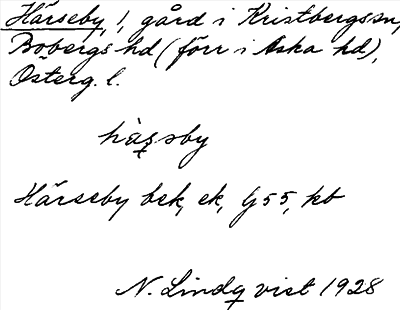 Härseby, 1, gård i Kristbergs sn,
Bobergs hd (förr i Aska hd),
Österg. l.
hä̀rsby
Härseby bek, ek, G 55, kb
N. Lindqvist 1928